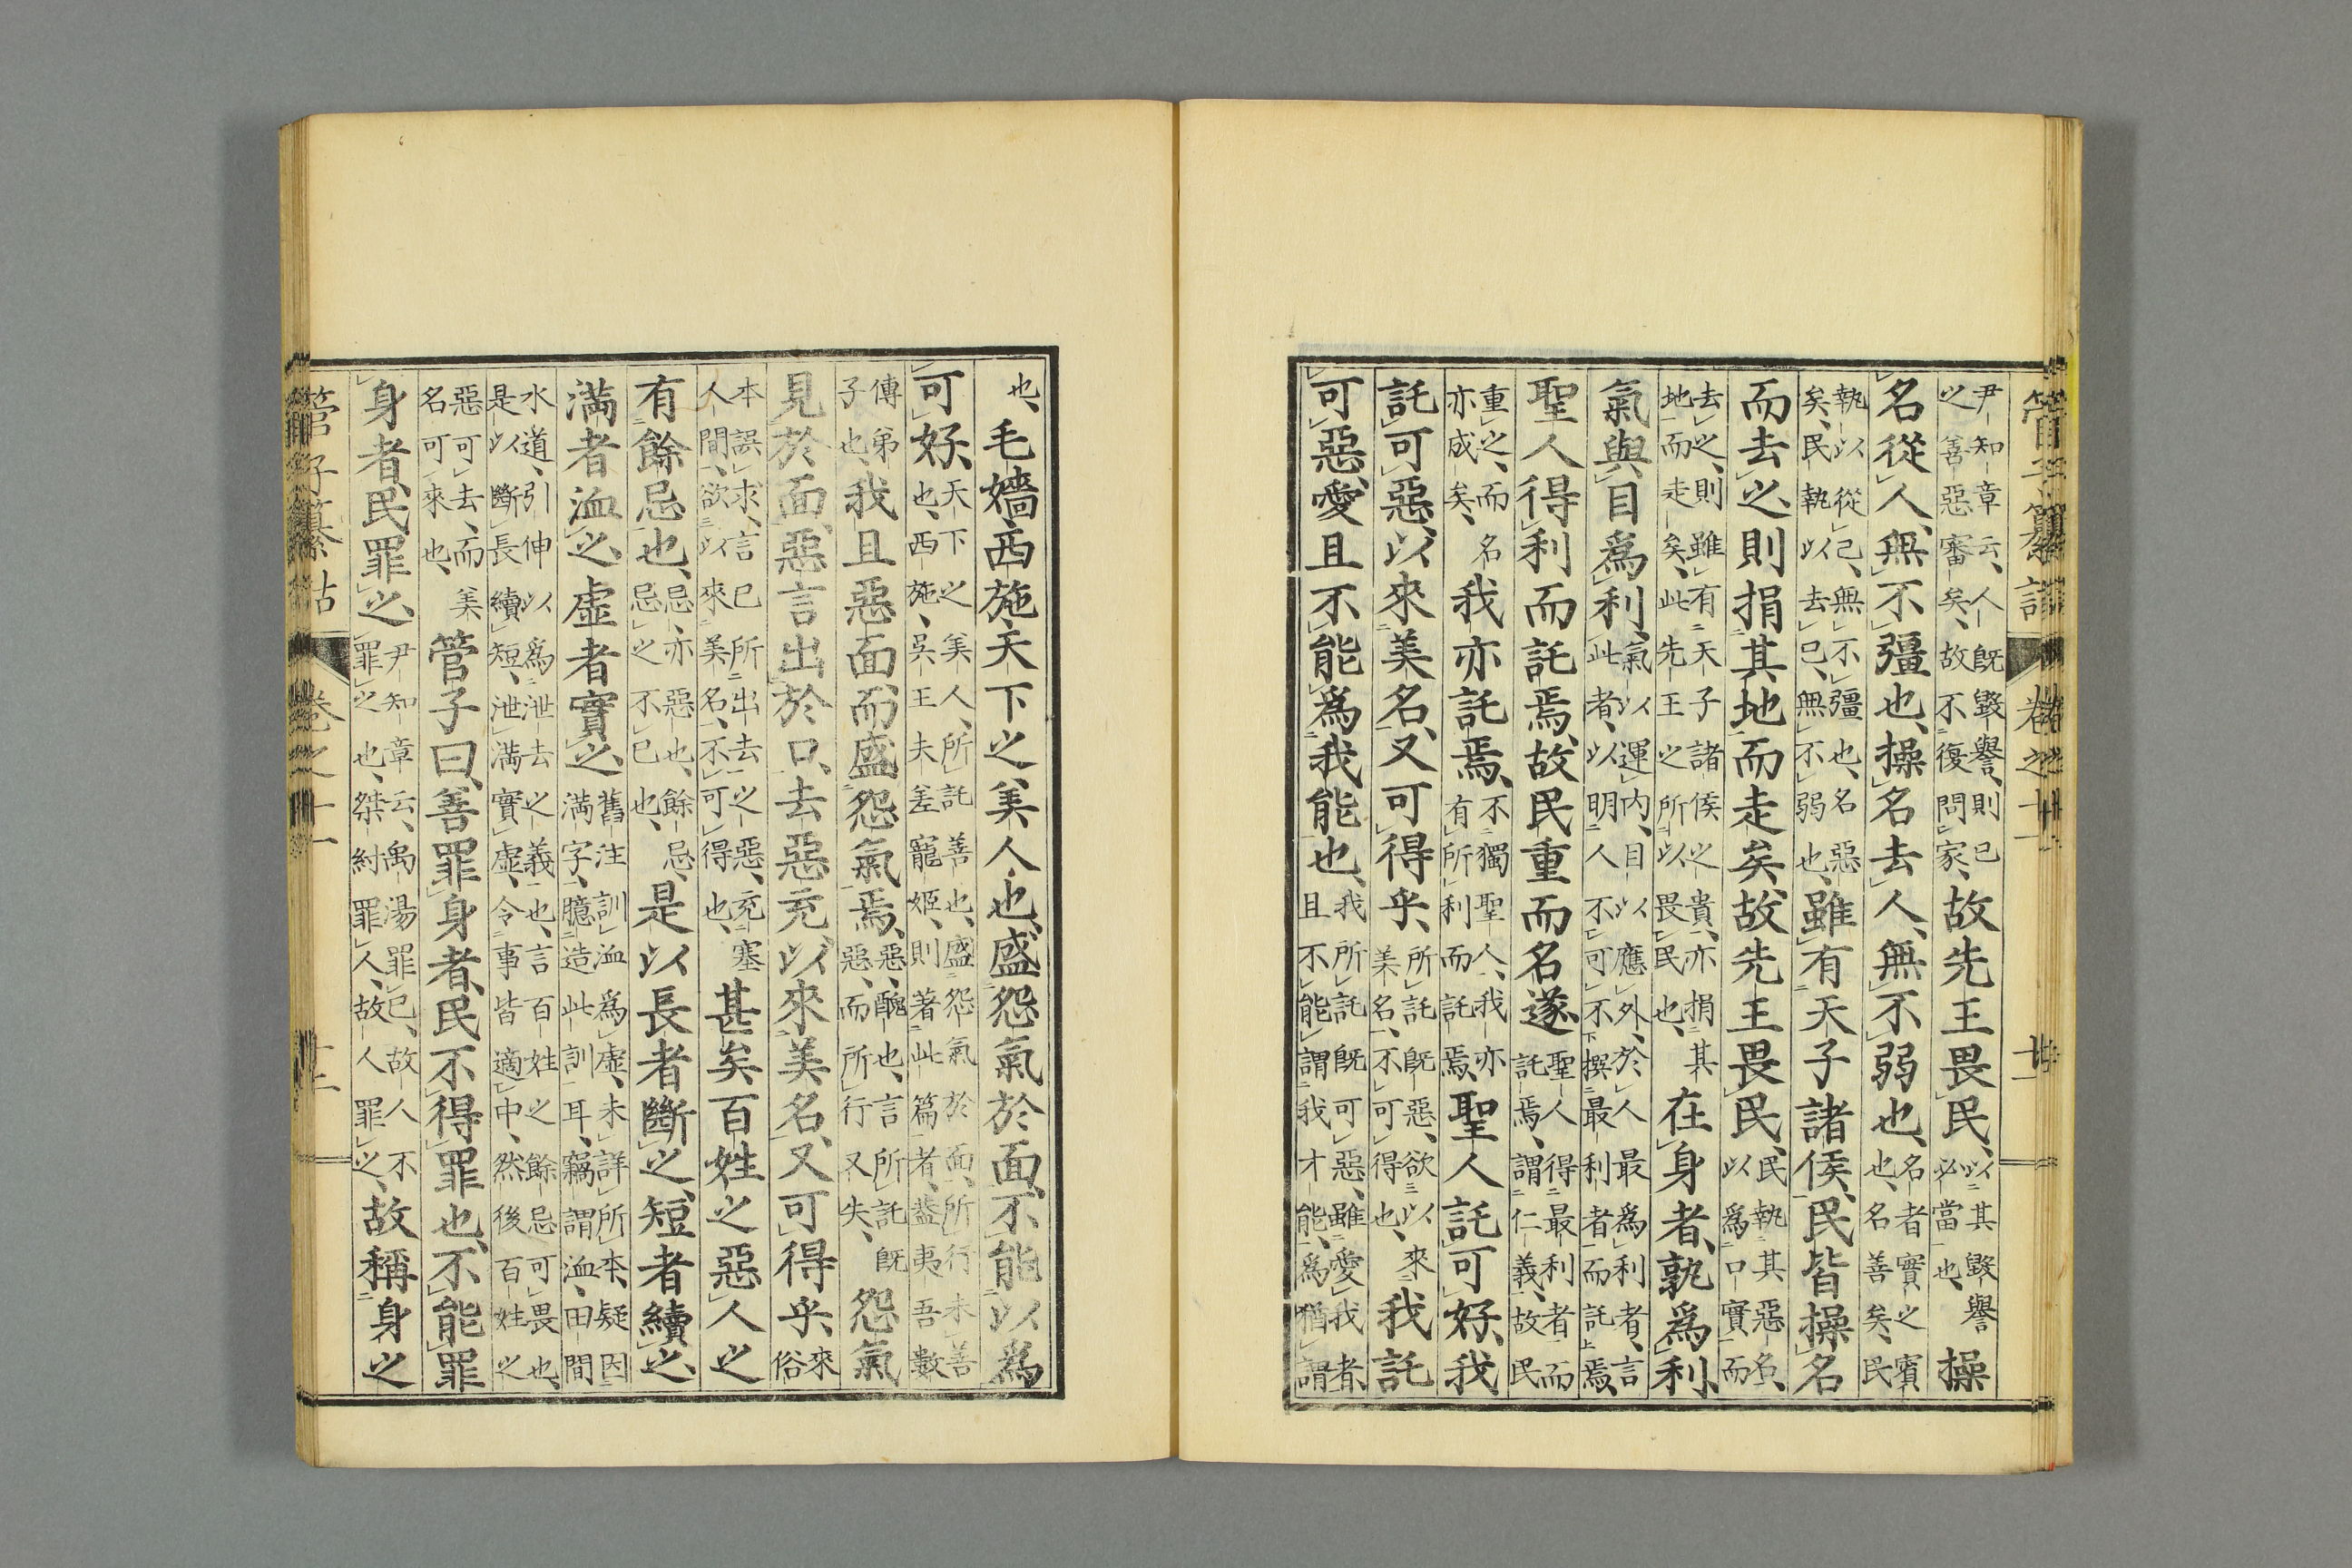 管子纂詁 卷之十一
尹知章云、人既毀譽、則已之善惡審矣、故不復問家、故先王畏民、以其毀譽必當也、操
名從人、無不彊也、操名去人、無不弱也、名者實之賓也、名善矣、民
執以從己、無不彊也、名惡矣、民執以去己、無不弱也、雖有天子諸侯、民皆操名
而去之、則捐其地而走矣、故先王畏民、民執其惡名、以爲口實、而
去之、則雖有天子諸侯之貴、亦捐其地而走矣、此先王之所以畏民也、在身者、孰爲利、
氣與目爲利、氣以運内、目以應外、於人最爲利者、言此者、以明人不可不撰最利者而託焉、
聖人得利而託焉、故民重而名遂聖人得最利者而託焉、謂仁義、故民
重之、而名亦成矣、我亦託焉、不獨聖人、我亦有所利而託焉、聖人託可好、我
託可惡、以來美名、又可得乎、所託既惡、欲以來美名、不可得也、我託
可惡、愛且不能爲我能也、我所託既可惡、雖愛我者、且不能謂我才能、爲猶謂
也、毛嬙西施、天下之美人也、盛怨氣於面、不能以爲
可好、天下之美人、所託善也、盛怨氣於面、所行未善也、西施、吳王夫差寵姬、則著此篇者、蓋夷吾數
傳弟子也、我且惡面、而盛怨氣焉、惡、醜也、言所託既惡、而所行又失、怨氣
見於面、惡言出於口、去惡充以來美名、又可得乎、來俗
本誤求、言已所出去之惡、充塞人間、欲以來美名、不可得也、甚矣百姓之惡人之
有餘忌也、忌、亦惡也、餘忌、忌之不已也、是以長者斷之、短者續之、
満者洫之、虛者實之、舊注訓洫爲虛、未詳所本、疑因満字、臆造此訓耳、竊謂洫、田間
水道、引伸以爲泄去之義也、言百姓之餘忌可畏也、是以斷長續短、泄満實虛、令事皆適中、然後百姓之
惡可去、而美名可來也、管子曰、善罪身者、民不得罪也、不能罪
身者、民罪之、尹知章云、禹湯罪已、故人不罪之也、桀紂罪人、故人罪之、故稱身之
管子纂詁 卷之十一 十二